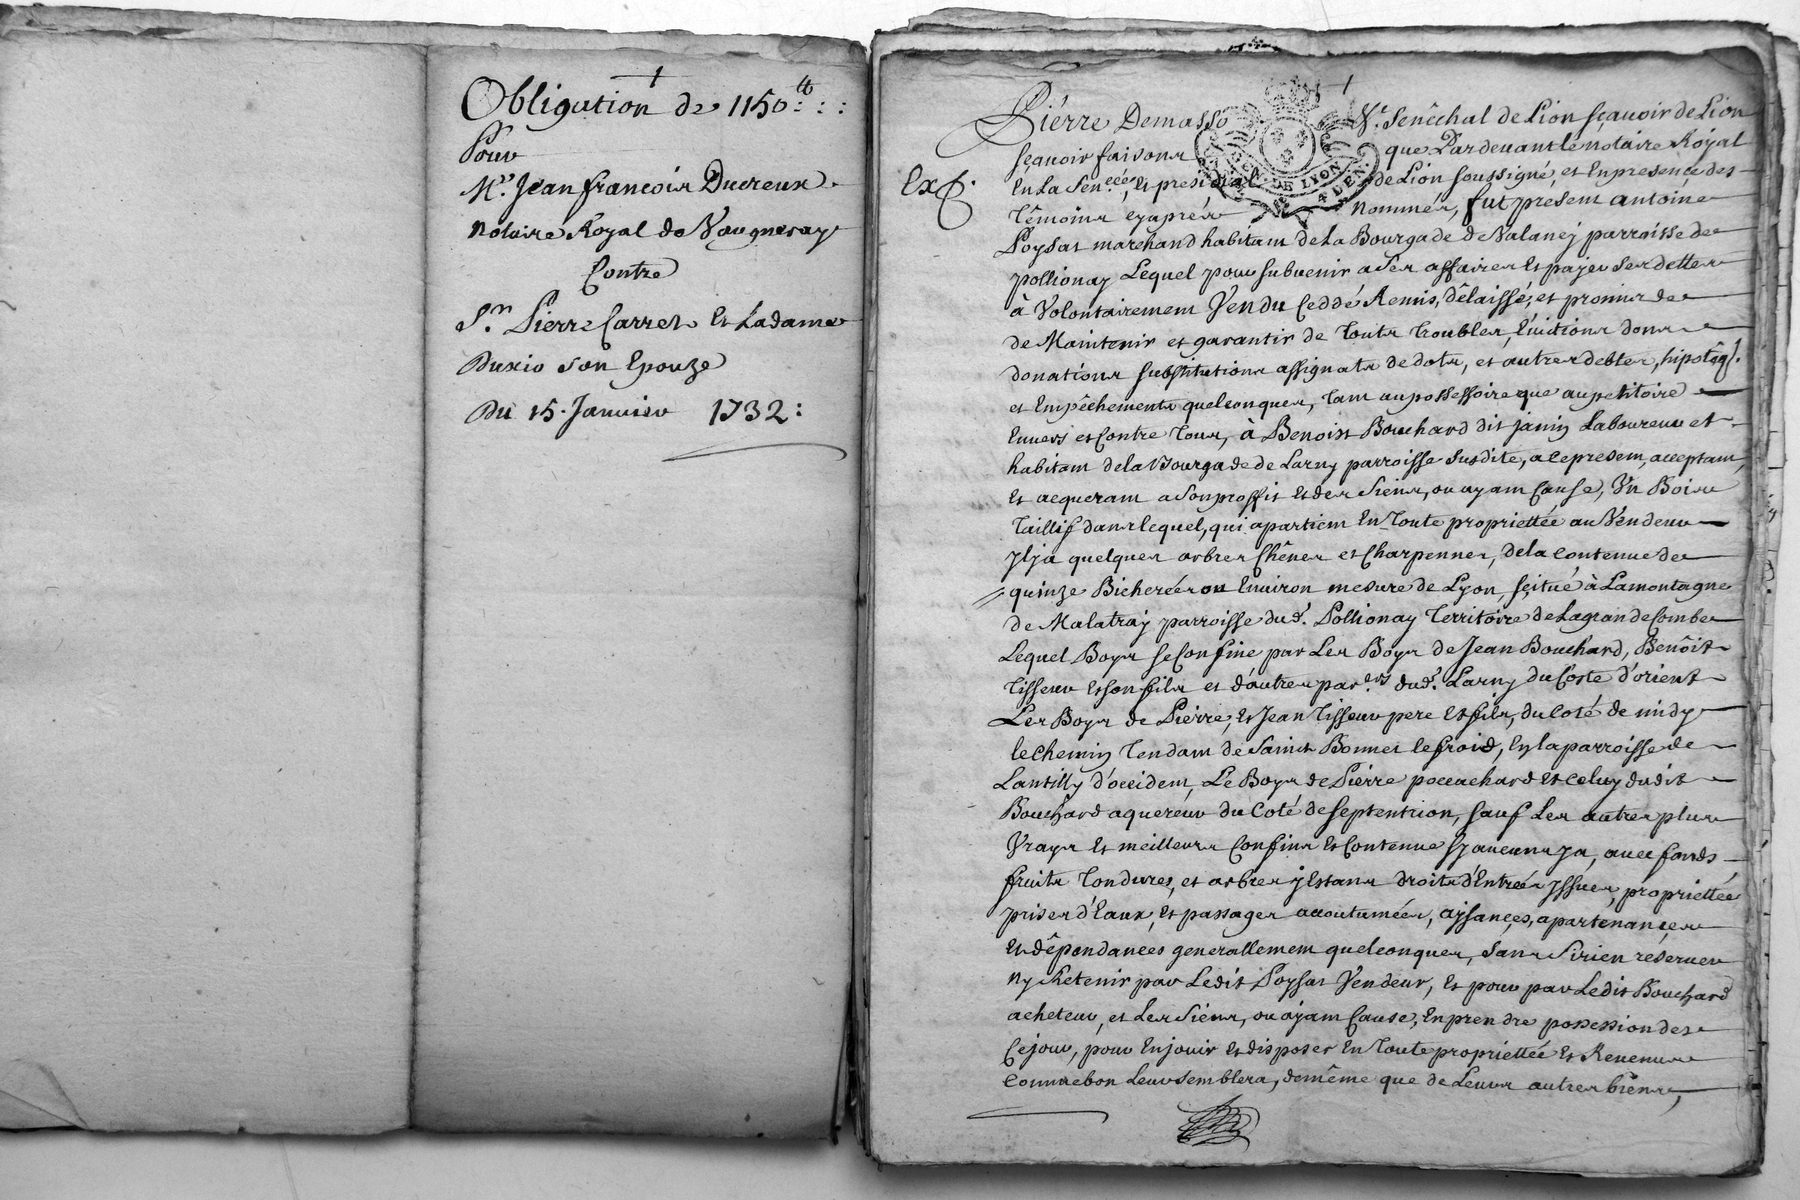 Obligation de 1150 ℔ : :
Pour
Mr. Jean francois Ducreux
Notaire Royal de Vaugneray
Contre
Sr. Pierre Carret Et Ladame
son Epouze
Du 15 Janvier 1732 :
Pierre Demasso Sr. Senêchal de Lion sçavoir de Lion
sçavoir faisons que Pardevant le notaire Royal
Exp.
En La Sen.ceé, Et presidial de Lion soussigné, et En presence des
Têmoins cy après Nommés, fut present antoine
Poysat marchand habitant de La Bourgade de Valancy parroisse de
pollionay Lequel pour subuenir a ses affaires Et payer ses dettes
à Volontairement Vendu Ceddé Remis, dêlaissé, et promis de
de Maintenir et garantir de Touts Troubles, Euictions dons
donations substitutions assignats de dots, et autres debtes, hipoteq.
et Empêchements quelconques, Tant au possessoire que au petitoire
Enuers et Contre Tous, à Benoist Bouchard dit janin Laboureur et
habitant de la Bourgade de Larny parroisse susdite, a ce present, acceptant,
Et acquerant a son proffit Et des siens, ou ayant Cause, Un Bois
Taillif dans lequel, qui apartient En Toute propriettée au Vendeur
Il ja quelques arbres Chênes et Charpennes, de la Contenue de
quinze Bicherées ou Enuiron mesure de Lyon, sçitué à La montagne
de Malatray parroisse dud. Pollionay Territoire de La grande Combe
Lequel Boys se Confine par Les Boys de Jean Bouchard, Benôit
Tisseur Et son fils et d'autres par.ers dud. Larny du Coste d'orient
Les Boys de Pierre, Et Jean Tisseur pere Et fils, du Coté de midy
le Chemin Tendant de Sainct Bonnet le froid, En la parroisse de
Lantilly d'occident, Le Boys de Pierre pocachard Et Celuy dudit
Bouchard aquereur du Coté de septentrion, sauf Les autres plus
Vrays Et meilleurs Confins Et Contenue sy aucuns ya, avec fonds
fruits Tondures, et arbres y Estans droits d'Entrées yssues, propriettée
prises d'Eaux, Et passages accoutumées, aysances, apartenances
Et dêpendances generallement quelconques, sans s'i rien reserver
Ny Retenir par Ledit Poysat Vendeur, Et pour par Ledit Bouchard
acheteur, et Les siens, ou ayant Cause, En prendre possession des
Ce jour, pour En jouir Et disposer En Toute propriettée Et Revenus
Comme bon Leur semblera, de même que de Leurs autres biens,